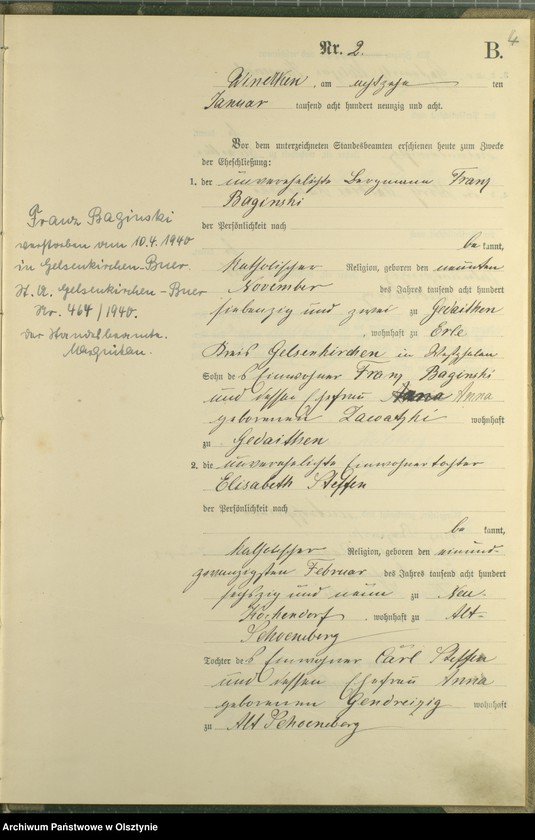 4
Nr. 2.
B.
am achtzehn ten
Januar tausend acht hundert neunzig und acht.
Vor dem unterzeichneten Standesbeamten erschienen heute zum Zwecke
der Eheschließung:
1. der unverehelichte Bergmann Franz
Baginski
der Persönlichkeit nach
be kannt,
katholischer Religion, geboren den neunten
November des Jahres tausend acht hundert
siebenzig und zwei zu Gedaithen
, wohnhaft zu Erle
Kreis Gelsenkirchen in Westphalen
Sohn des Einwohner Franz Baginski
und dessen Ehefrau Anna
geborenen wohnhaft
zu Gedaithen
2. die unverehelichte Einwohnertochter
Elisabeth Steffen
der Persönlichkeit nach
be kannt,
katholischer Religion, geboren den einund-
zwanzigsten Februar des Jahres tausend acht hundert
sechszig und neun zu Neu-
Kockendorf, wohnhaft zu Alt-
Schoeneberg
Tochter des Einwohner Carl Steffen
und dessen Ehefrau Anna
geborenen Gendreizig wohnhaft
zu Alt Schoeneberg
Franz Baginski
verstorben am 10.4.1940
in Gelsenkirchen-Buer.
St. A. Gelsenkirchen-Buer
Nr. 464/1940.
Der Standesbeamte.
Archiwum Państwowe w Olsztynie